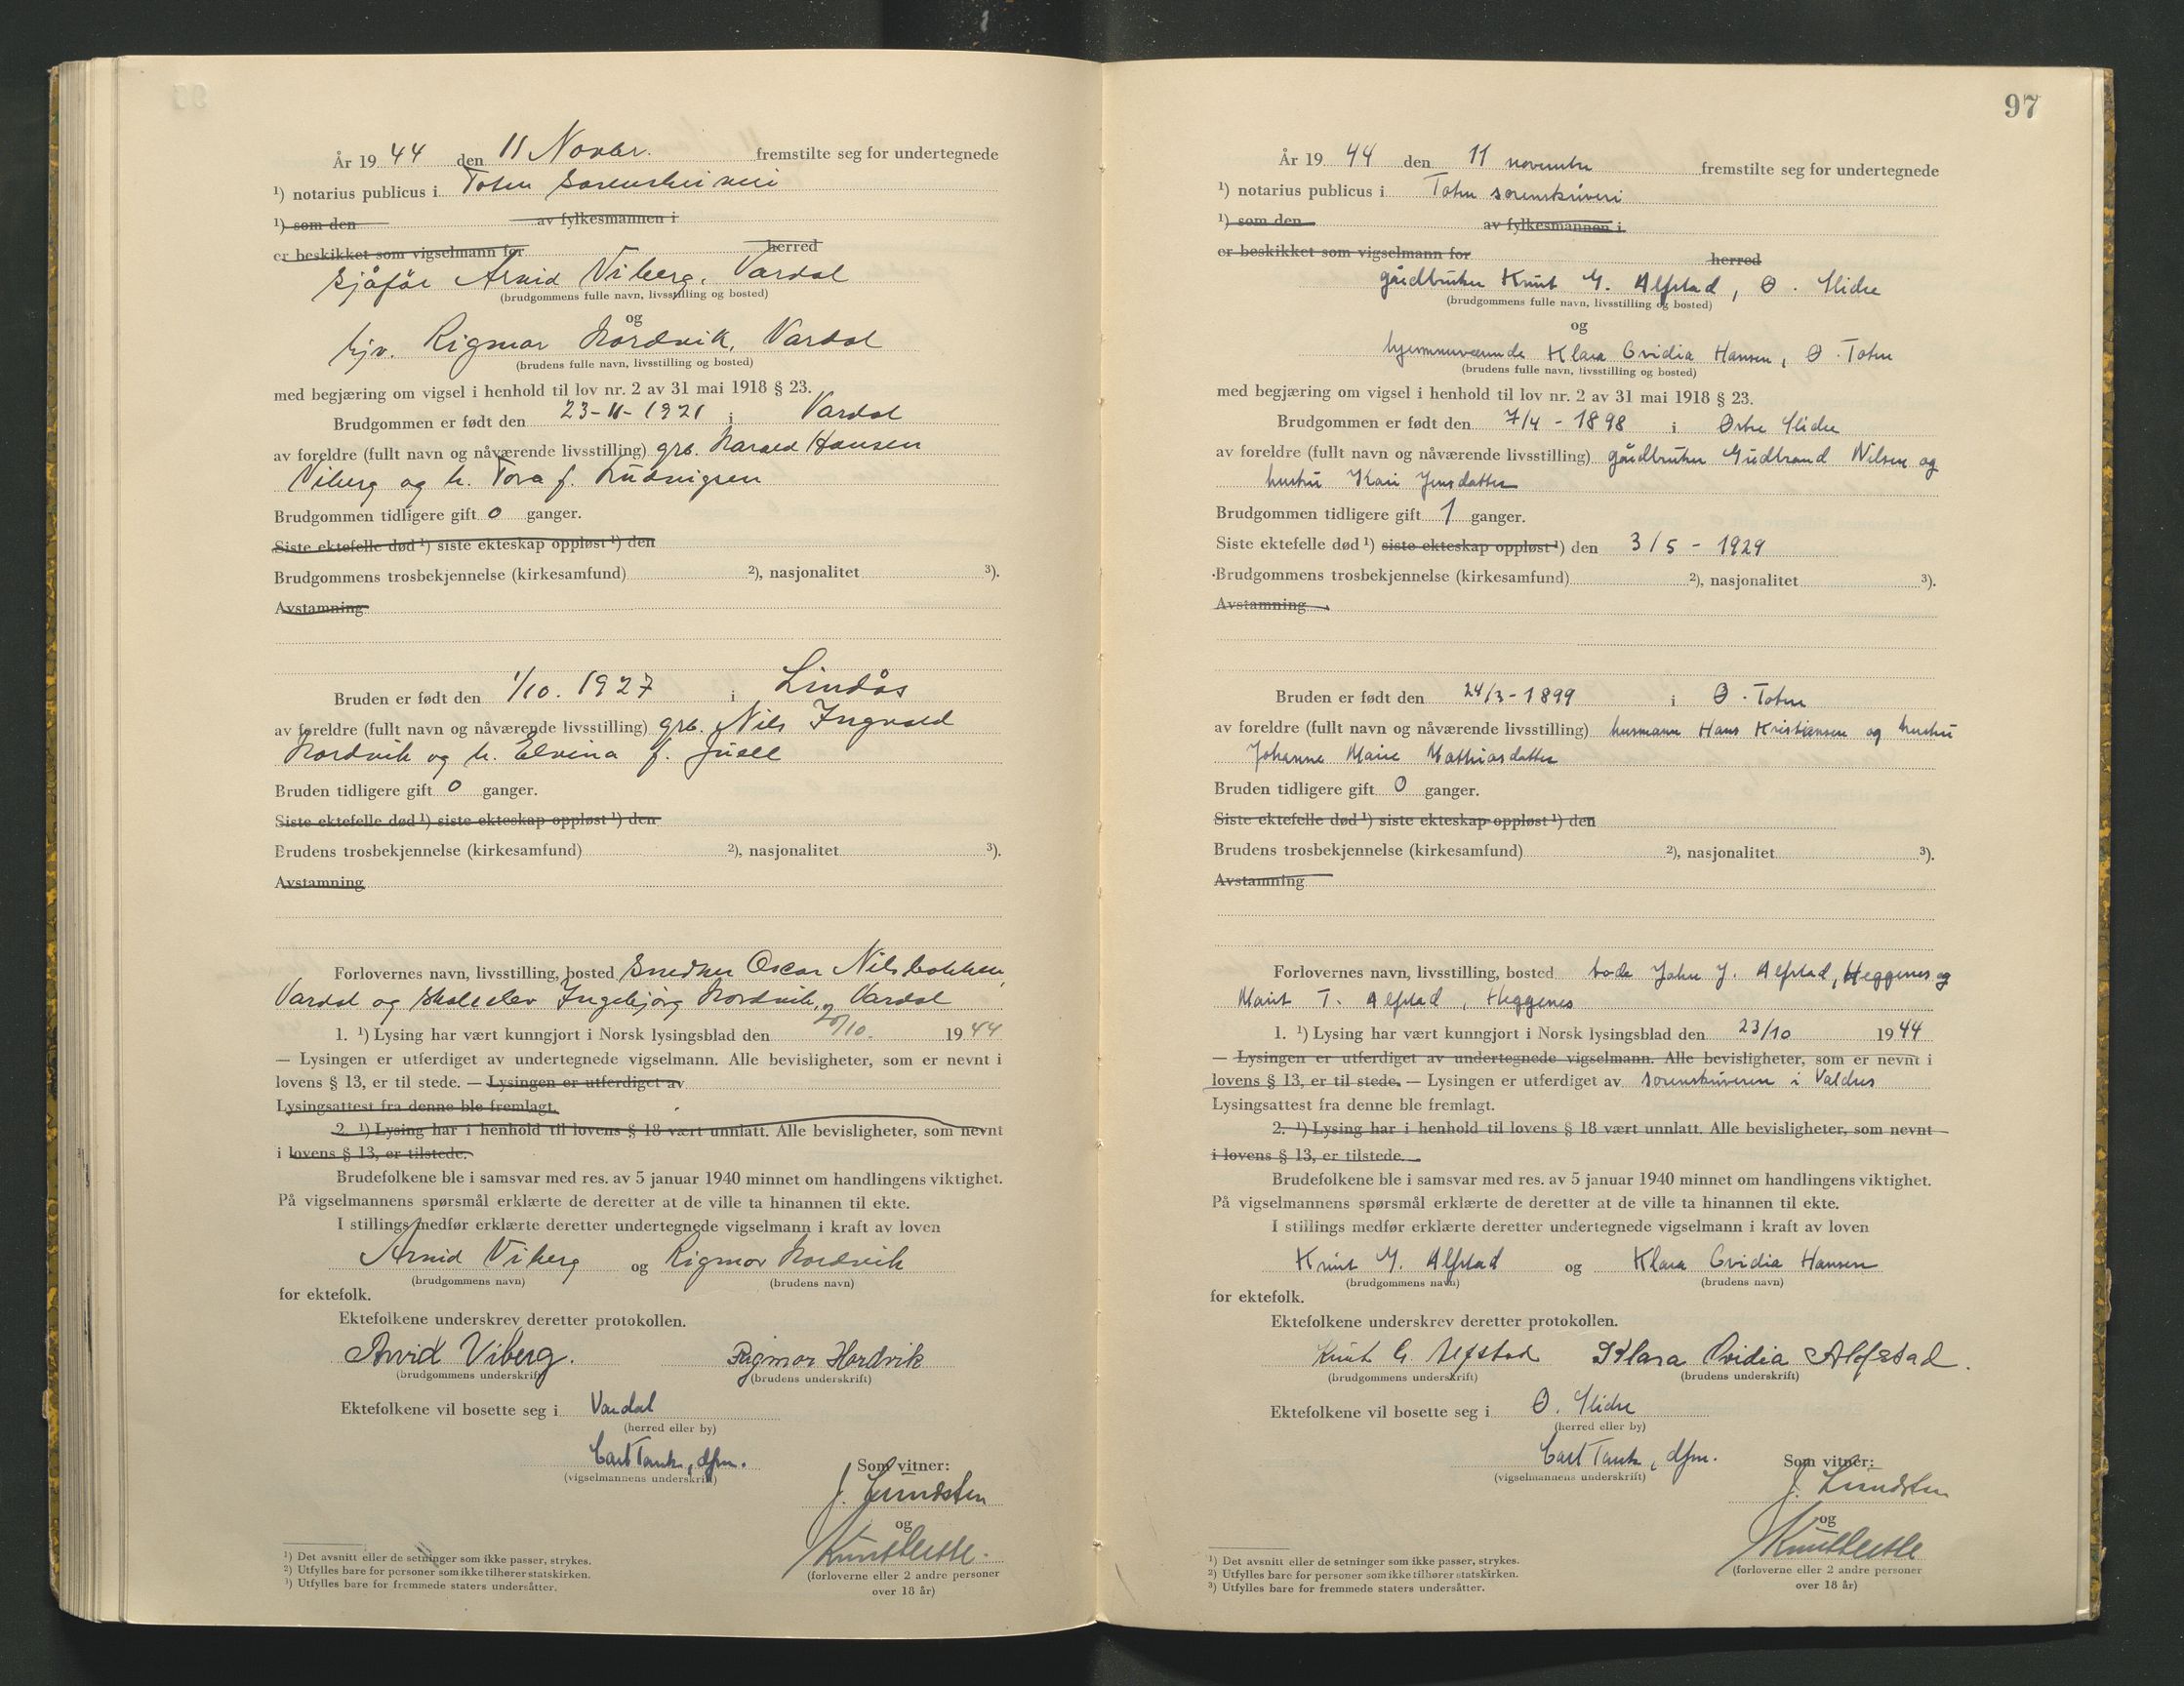 År 19 44 den 11 Novbr. fremstilte seg for undertegnede
¹) notarius publicus i Toten Sorenskriveri
¹) som den av fylkesmannen i
er beskikket som vigselmann for herred
Sjåfør Arvid Viberg, Vardal
(brudgommens fulle navn, livsstilling og bosted)
og
hjv. Rigmor Hordvik, Vardal
(brudens fulle navn, livsstilling og bosted)
med begjæring om vigsel i henhold til lov nr. 2 av 31 mai 1918 § 23.
Brudgommen er født den 23-11-1921 i Vardal
av foreldre (fullt navn og nåværende livsstilling) grb. Harald Hansen
Viberg og h. Tora f. Ludvigsen
Brudgommen tidligere gift 0 ganger.
Siste ektefelle død ¹) siste ekteskap oppløst ¹) den
Brudgommens trosbekjennelse (kirkesamfund) ²), nasjonalitet ³).
Avstamning
Bruden er født den 1/10. 1927 i Lindås
av foreldre (fullt navn og nåværende livsstilling) grb. Nils Ingvald
Hordvik og h. Elvina f. Juell
Bruden tidligere gift 0 ganger.
Siste ektefelle død ¹) siste ekteskap oppløst ¹) den
Brudens trosbekjennelse (kirkesamfund) ²), nasjonalitet ³).
Avstamning
Forlovernes navn, livsstilling, bosted Snedker Oscar Nilsbakken,
Vardal og skoleelev Ingebjørg Hordvik, Vardal
1. ¹) Lysing har vært kunngjort i Norsk lysingsblad den 20/10. 1944
— Lysingen er utferdiget av undertegnede vigselmann. Alle bevisligheter, som er nevnt i
lovens § 13, er til stede. — Lysingen er utferdiget av
Lysingsattest fra denne ble fremlagt.
2. ¹) Lysing har i henhold til lovens § 18 vært unnlatt. Alle bevisligheter, som nevnt
i lovens § 13, er tilstede.
Brudefolkene ble i samsvar med res. av 5 januar 1940 minnet om handlingens viktighet.
På vigselmannens spørsmål erklærte de deretter at de ville ta hinannen til ekte.
I stillings medfør erklærte deretter undertegnede vigselmann i kraft av loven
Arvid Viberg og Rigmor Hordvik
(brudgommens navn) (brudens navn)
for ektefolk.
Ektefolkene underskrev deretter protokollen.
Arvid Viberg. Rigmor Hordvik
(brudgommens underskrift) (brudens underskrift)
Ektefolkene vil bosette seg i Vardal
(herred eller by)
Carl Tank, dfm.
(vigselmannens underskrift)
Som vitner:
J. Lundsten
og
(forloverne eller 2 andre personer
over 18 år)
¹) Det avsnitt eller de setninger som ikke passer, strykes.
²) Utfylles bare for personer som ikke tilhører statskirken.
³) Utfylles bare for fremmede staters undersåtter.
97
År 19 44 den 11 november fremstilte seg for undertegnede
¹) notarius publicus i Toten sorenskriveri
¹) som den av fylkesmannen i
er beskikket som vigselmann for herred
gårdbruker Knut G. Alfstad, Ø. Slidre
(brudgommens fulle navn, livsstilling og bosted)
og
hjemmeværende Klara Ovidia Hansen, Ø. Toten
(brudens fulle navn, livsstilling og bosted)
med begjæring om vigsel i henhold til lov nr. 2 av 31 mai 1918 § 23.
Brudgommen er født den 7/4 - 1898 i Østre Slidre
av foreldre (fullt navn og nåværende livsstilling) gårdbruker Gudbrand Nilsen og
hustru Kari Jensdatter
Brudgommen tidligere gift 1 ganger.
Siste ektefelle død ¹) siste ekteskap oppløst ¹) den 3/5 - 1929
Brudgommens trosbekjennelse (kirkesamfund) ²), nasjonalitet ³).
Avstamning
Bruden er født den 24/3 - 1899 i Ø. Toten
av foreldre (fullt navn og nåværende livsstilling) husmann Hans Kristiansen og hustru
Johanne Marie Mathiasdatter
Bruden tidligere gift 0 ganger.
Siste ektefelle død ¹) siste ekteskap oppløst ¹) den
Brudens trosbekjennelse (kirkesamfund) ²), nasjonalitet ³).
Avstamning
Forlovernes navn, livsstilling, bosted John J. Alfstad, Heggenes og
Marit T. Alfstad, Heggenes
1. ¹) Lysing har vært kunngjort i Norsk lysingsblad den 23/10 1944
— Lysingen er utferdiget av undertegnede vigselmann. Alle bevisligheter, som er nevnt i
lovens § 13, er til stede. — Lysingen er utferdiget av sorenskriveren i Valdres
Lysingsattest fra denne ble fremlagt.
2. ¹) Lysing har i henhold til lovens § 18 vært unnlatt. Alle bevisligheter, som nevnt
i lovens § 13, er tilstede.
Brudefolkene ble i samsvar med res. av 5 januar 1940 minnet om handlingens viktighet.
På vigselmannens spørsmål erklærte de deretter at de ville ta hinannen til ekte.
I stillings medfør erklærte deretter undertegnede vigselmann i kraft av loven
Knut G. Alfstad og Klara Ovidia Hansen
(brudgommens navn) (brudens navn)
for ektefolk.
Ektefolkene underskrev deretter protokollen.
Knut G. Alfstad Klara Ovidia Alfstad.
(brudgommens underskrift) (brudens underskrift)
Ektefolkene vil bosette seg i Ø. Slidre
(herred eller by)
Carl Tank, dfm.
(vigselmannens underskrift)
Som vitner:
J. Lundsten
og
(forloverne eller 2 andre personer
over 18 år)
¹) Det avsnitt eller de setninger som ikke passer, strykes.
²) Utfylles bare for personer som ikke tilhører statskirken.
³) Utfylles bare for fremmede staters undersåtter.